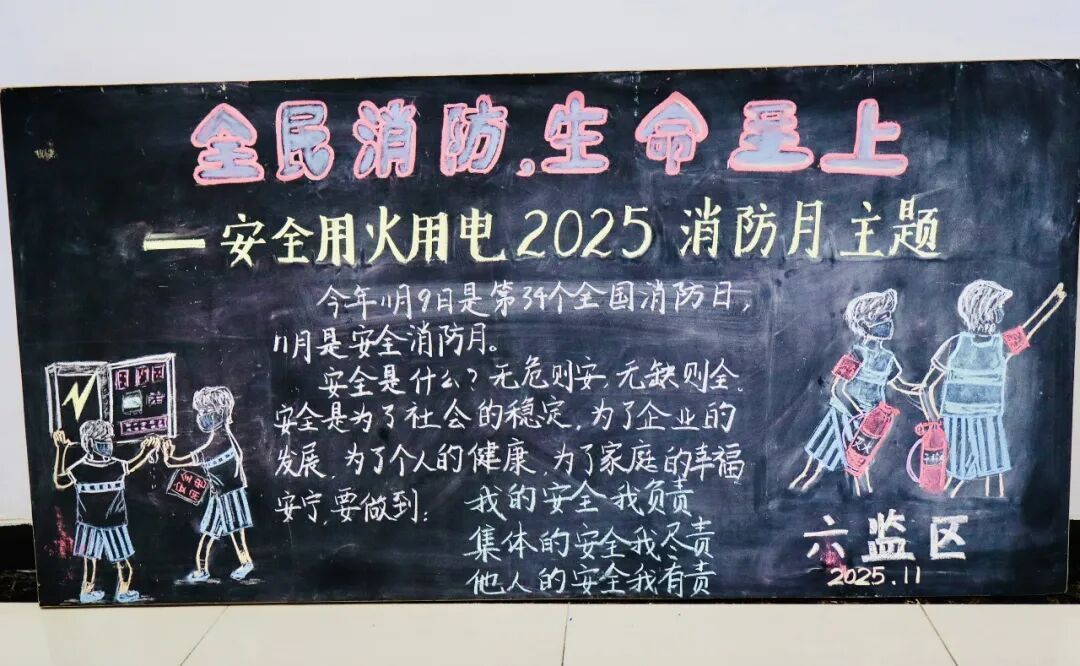 全民消防,生命至上
—安全用火用电2025消防月主题
今年11月9日是第34个全国消防日,
11月是安全消防月。
安全是什么?无危则安,无缺则全.
安全是为了社会的稳定,为了企业的
发展,为了个人的健康,为了家庭的幸福
安宁,要做到:
我的安全我负责
集体的安全我尽责
他人的安全我有责
六监区
2025.11